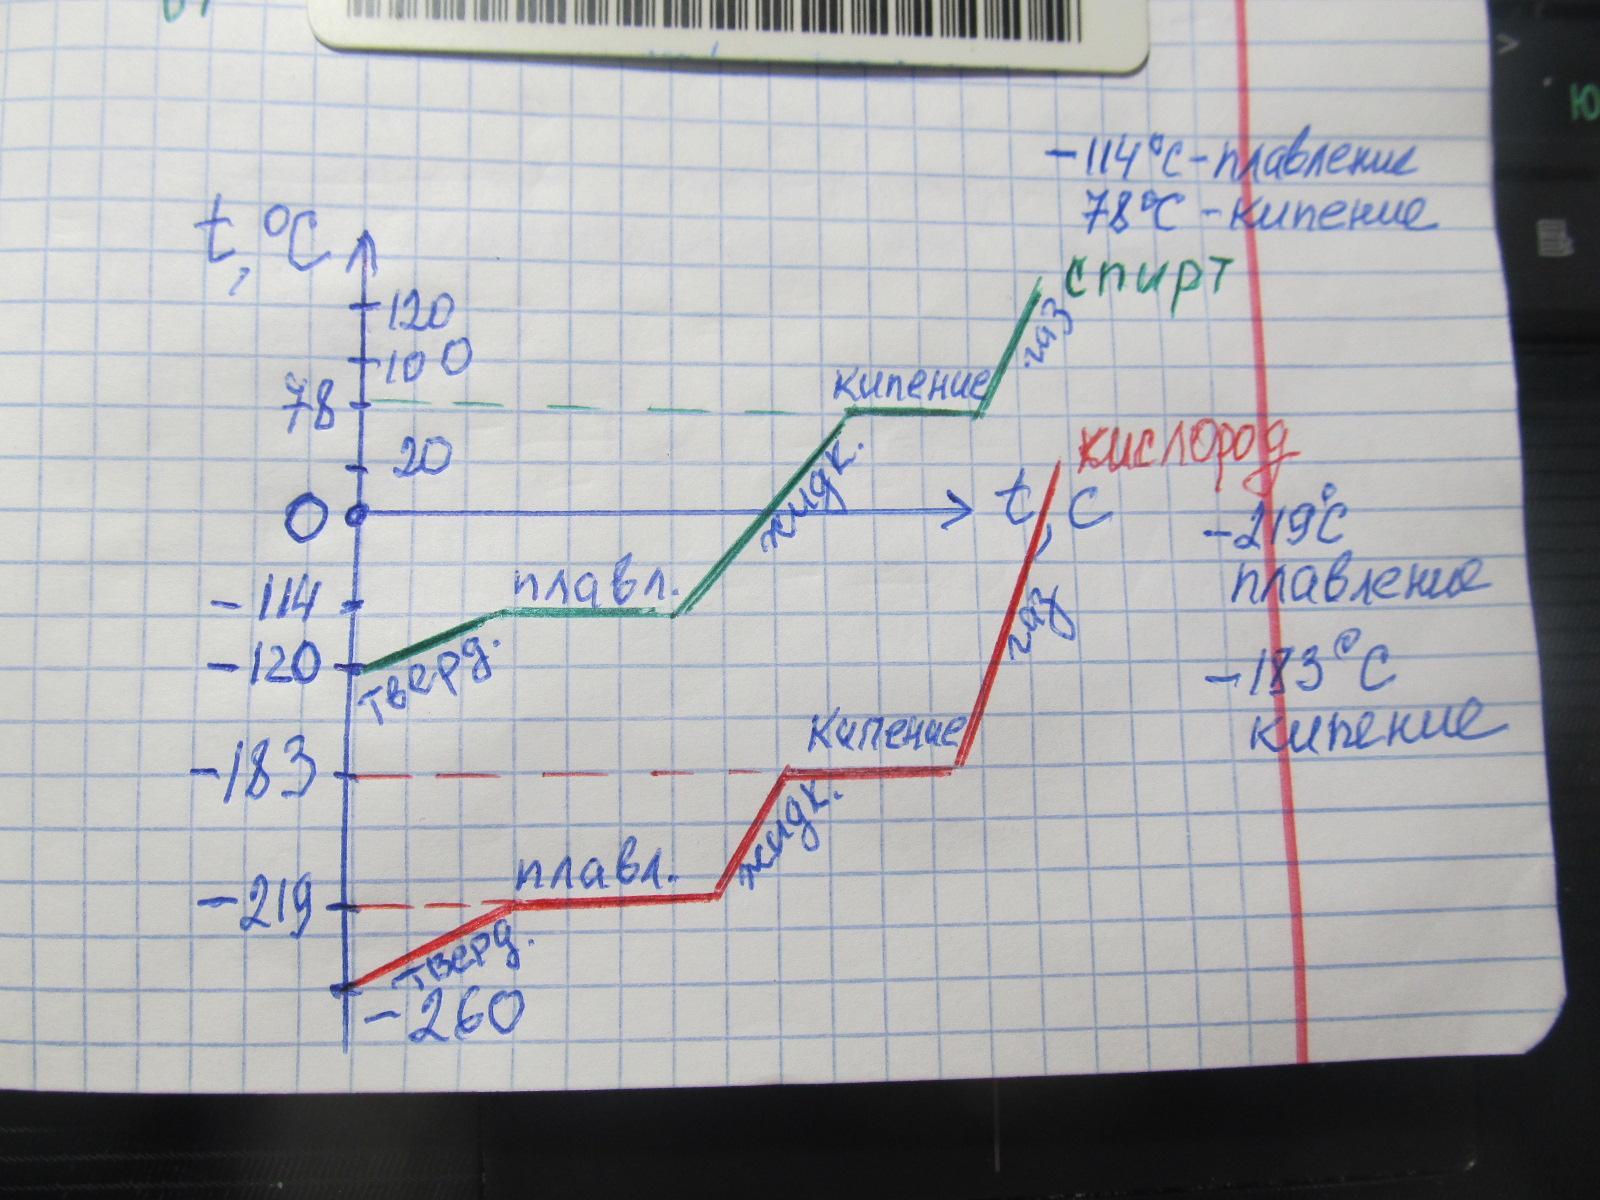 -114°C - плавление
78°C - кипение
t, °C
спирт
120
газ
100
кипение
78
кислород
20
жидк.
0
t, C
-219°C
плавл.
-114
плавление
газ
-120
тверд.
-183°C
кипение
Кипение
-183
жидк.
плавл.
-219
тверд.
-260
Ю